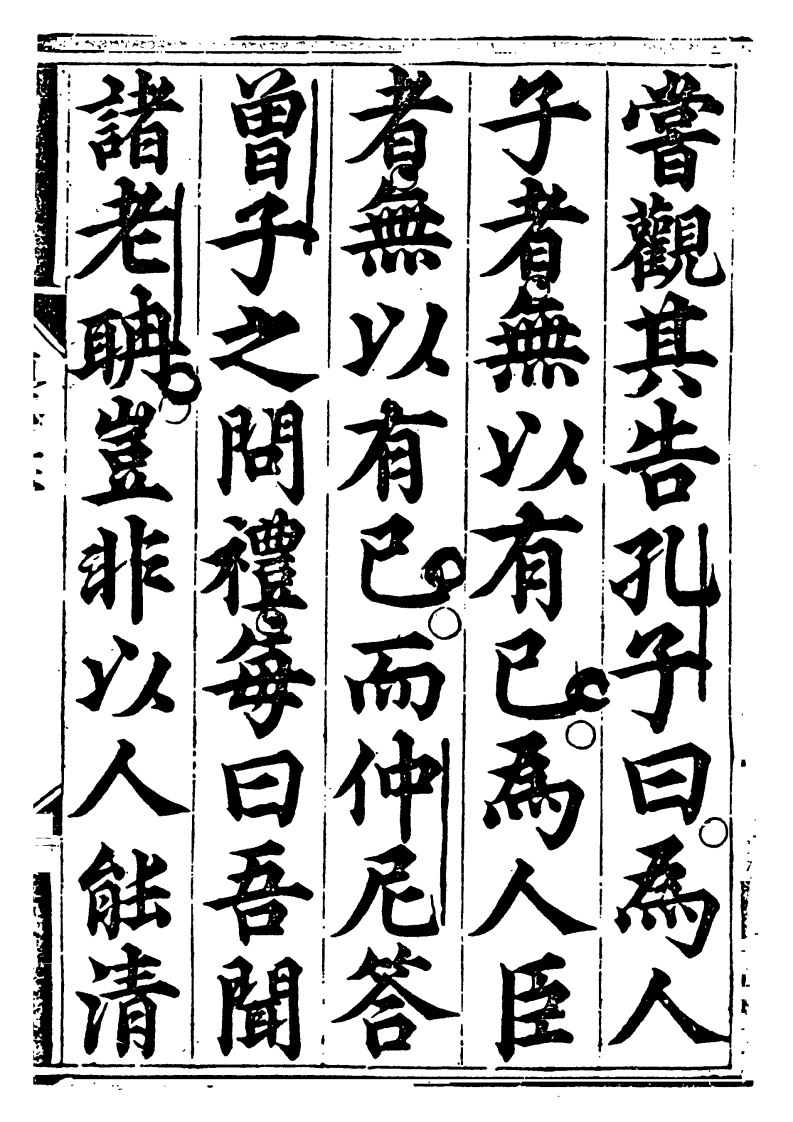 嘗觀其告孔子曰為人
子者無以有已為人臣
者無以有已而仲尼答
曾子之問禮每曰吾聞
諸老聃豈非以人能清